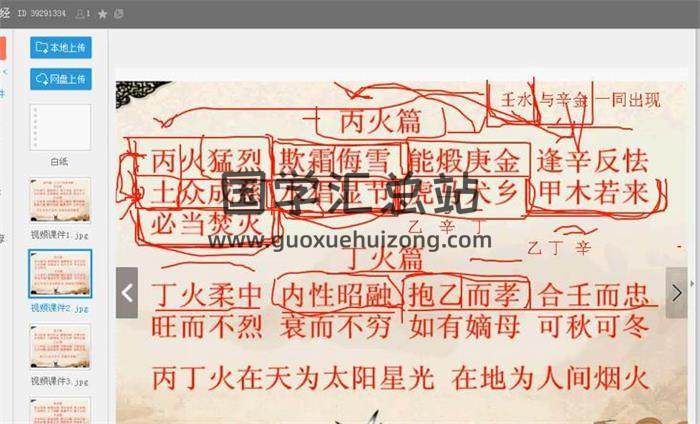 经 ID 39291334 1
本地上传
网盘上传
白纸
视频课件1.jpg
视频课件2.jpg
视频课件3.jpg
壬水 与辛金 一同出现
丙火篇
丙火猛烈 欺霜侮雪 能煅庚金 逢辛反怯
土众成 显节 虎 犬乡 甲木若来
必当焚灭
国学汇总站
www.guoxuehuizong.com
乙 辛 丁
乙 丁 辛
丁火篇
丁火柔中 内性昭融 抱乙而孝 合壬而忠
旺而不烈 衰而不穷 如有嫡母 可秋可冬
丙丁火在天为太阳星光 在地为人间烟火